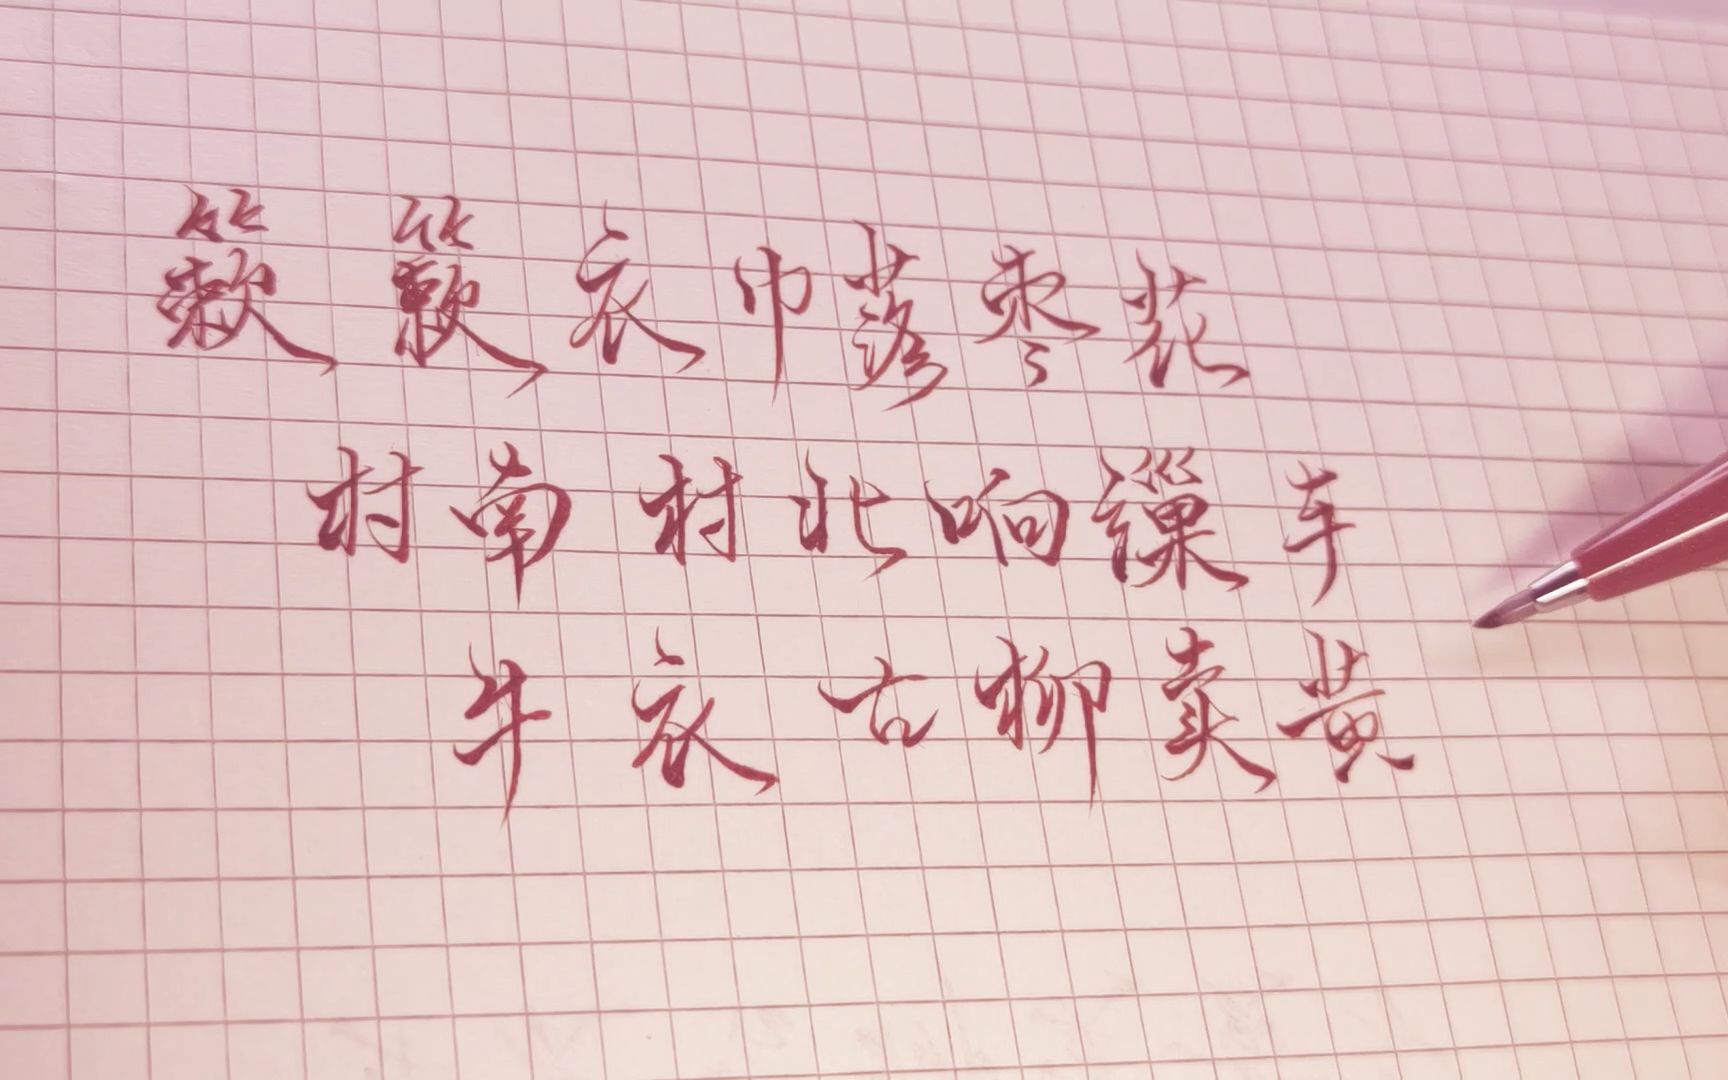 簌簌衣巾落枣花
村南村北响缫车
牛衣古柳卖黄